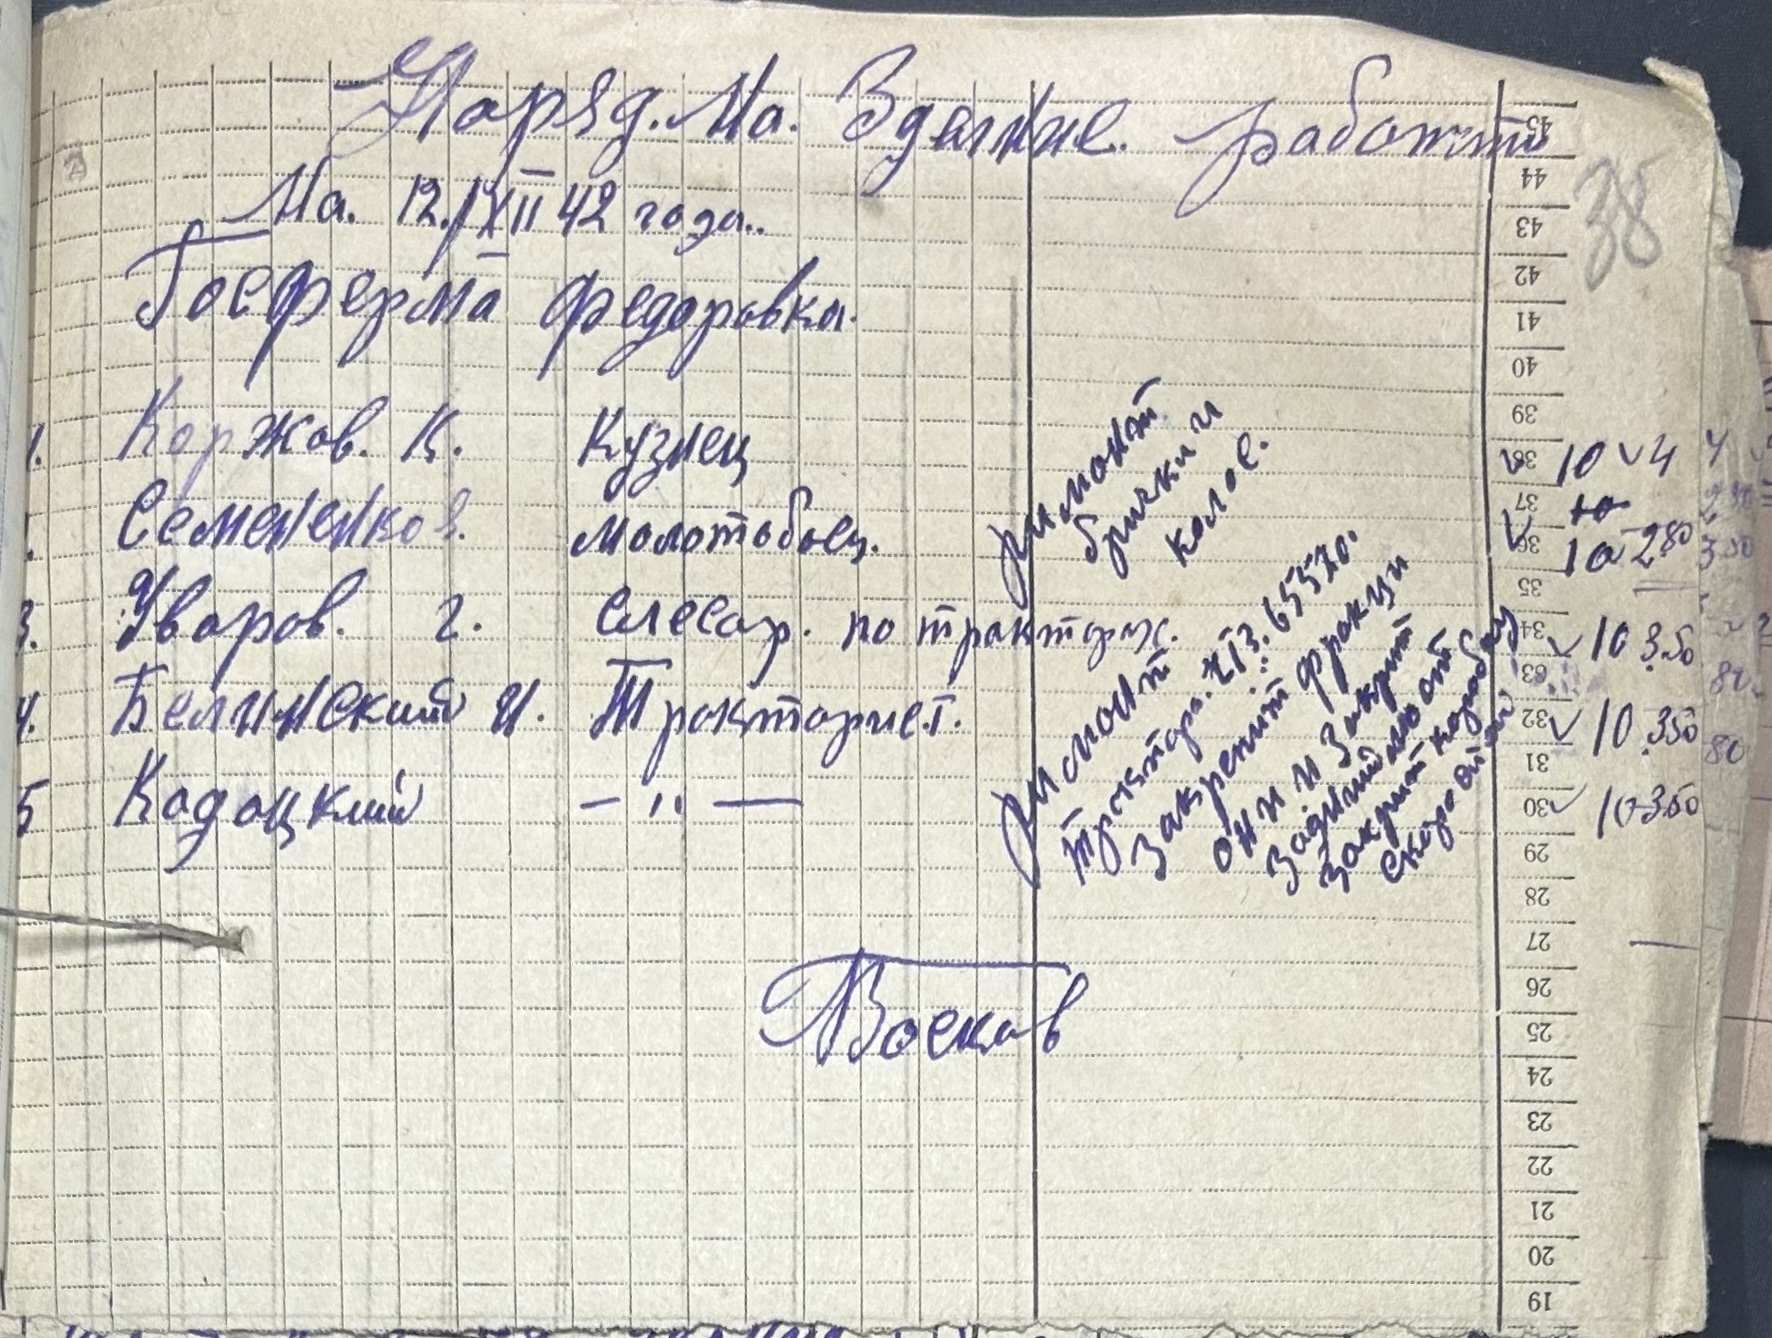 Наряд. На. Здание. работи
На. 12./XII 42 года..
Госферма федоровка.
1. Коржов. К. Кузнец
Семененков. молотобоец.
3. Уваров. г. слесар. по тракторах.
4. Белинский И. Тракторист.
5 Кадацкий — " —
римонт
брички и
колос.
римонт
трактора. хтз. 65570.
закрепит фрикци
он и и закрит
задний мост
закрит коробку
скоростий
10 4
10
10 - 2 80
10 3.50
10. 350
10-350
4
3 50
80
80
38
Восков
45
44
43
42
41
40
39
38
37
36
35
34
33
32
31
30
29
28
27
26
25
24
23
22
21
20
19